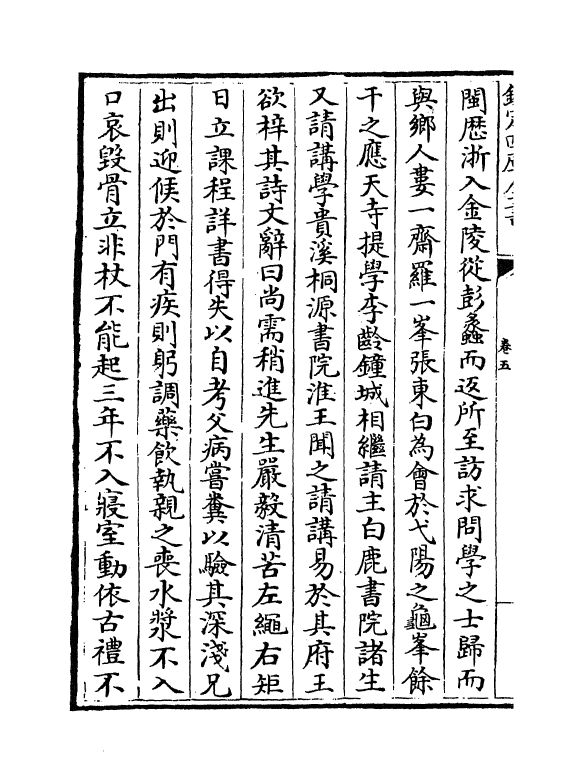 欽定四庫全書
卷五
閩歴浙入金陵從彭蠡而返所至訪求問學之士歸而
與鄉人婁一齋羅一峯張東白為會於弋陽之龜峯餘
干之應天寺提學李齡鐘城相繼請主白鹿書院諸生
又請講學貴溪桐源書院淮王聞之請講易於其府王
欲梓其詩文辭曰尚需稍進先生嚴毅清苦左繩右矩
日立課程詳書得失以自考父病嘗糞以驗其深淺兄
出則迎候於門有疾則躬調藥飲執親之喪水漿不入
口哀毀骨立非杖不能起三年不入寢室動依古禮不